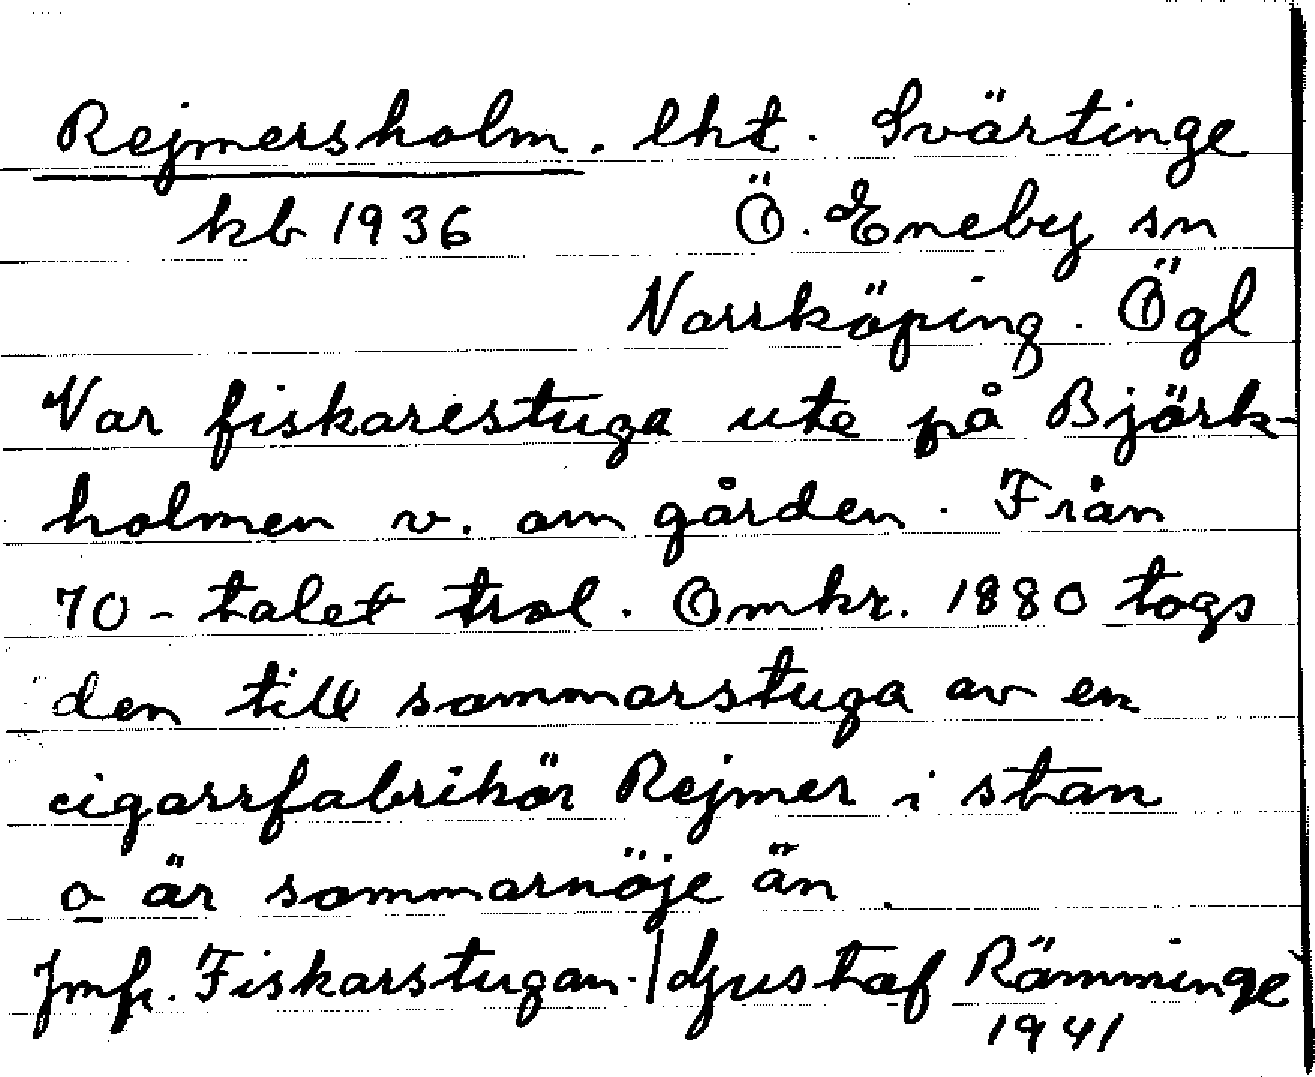 Rejmersholm. lht. Svärtinge
kb 1936 Ö. Eneby sn
Norrköping. Ögl
Var fiskarestuga ute på Björk-
holmen v. om gården. Från
70-talet trol. Omkr. 1880 togs
den till sommarstuga av en
cigarrfabrikör Rejmer i stan
o är sommarnöje än.
Jmfr. Fiskarstugan. / Gustaf Rämminge
1941